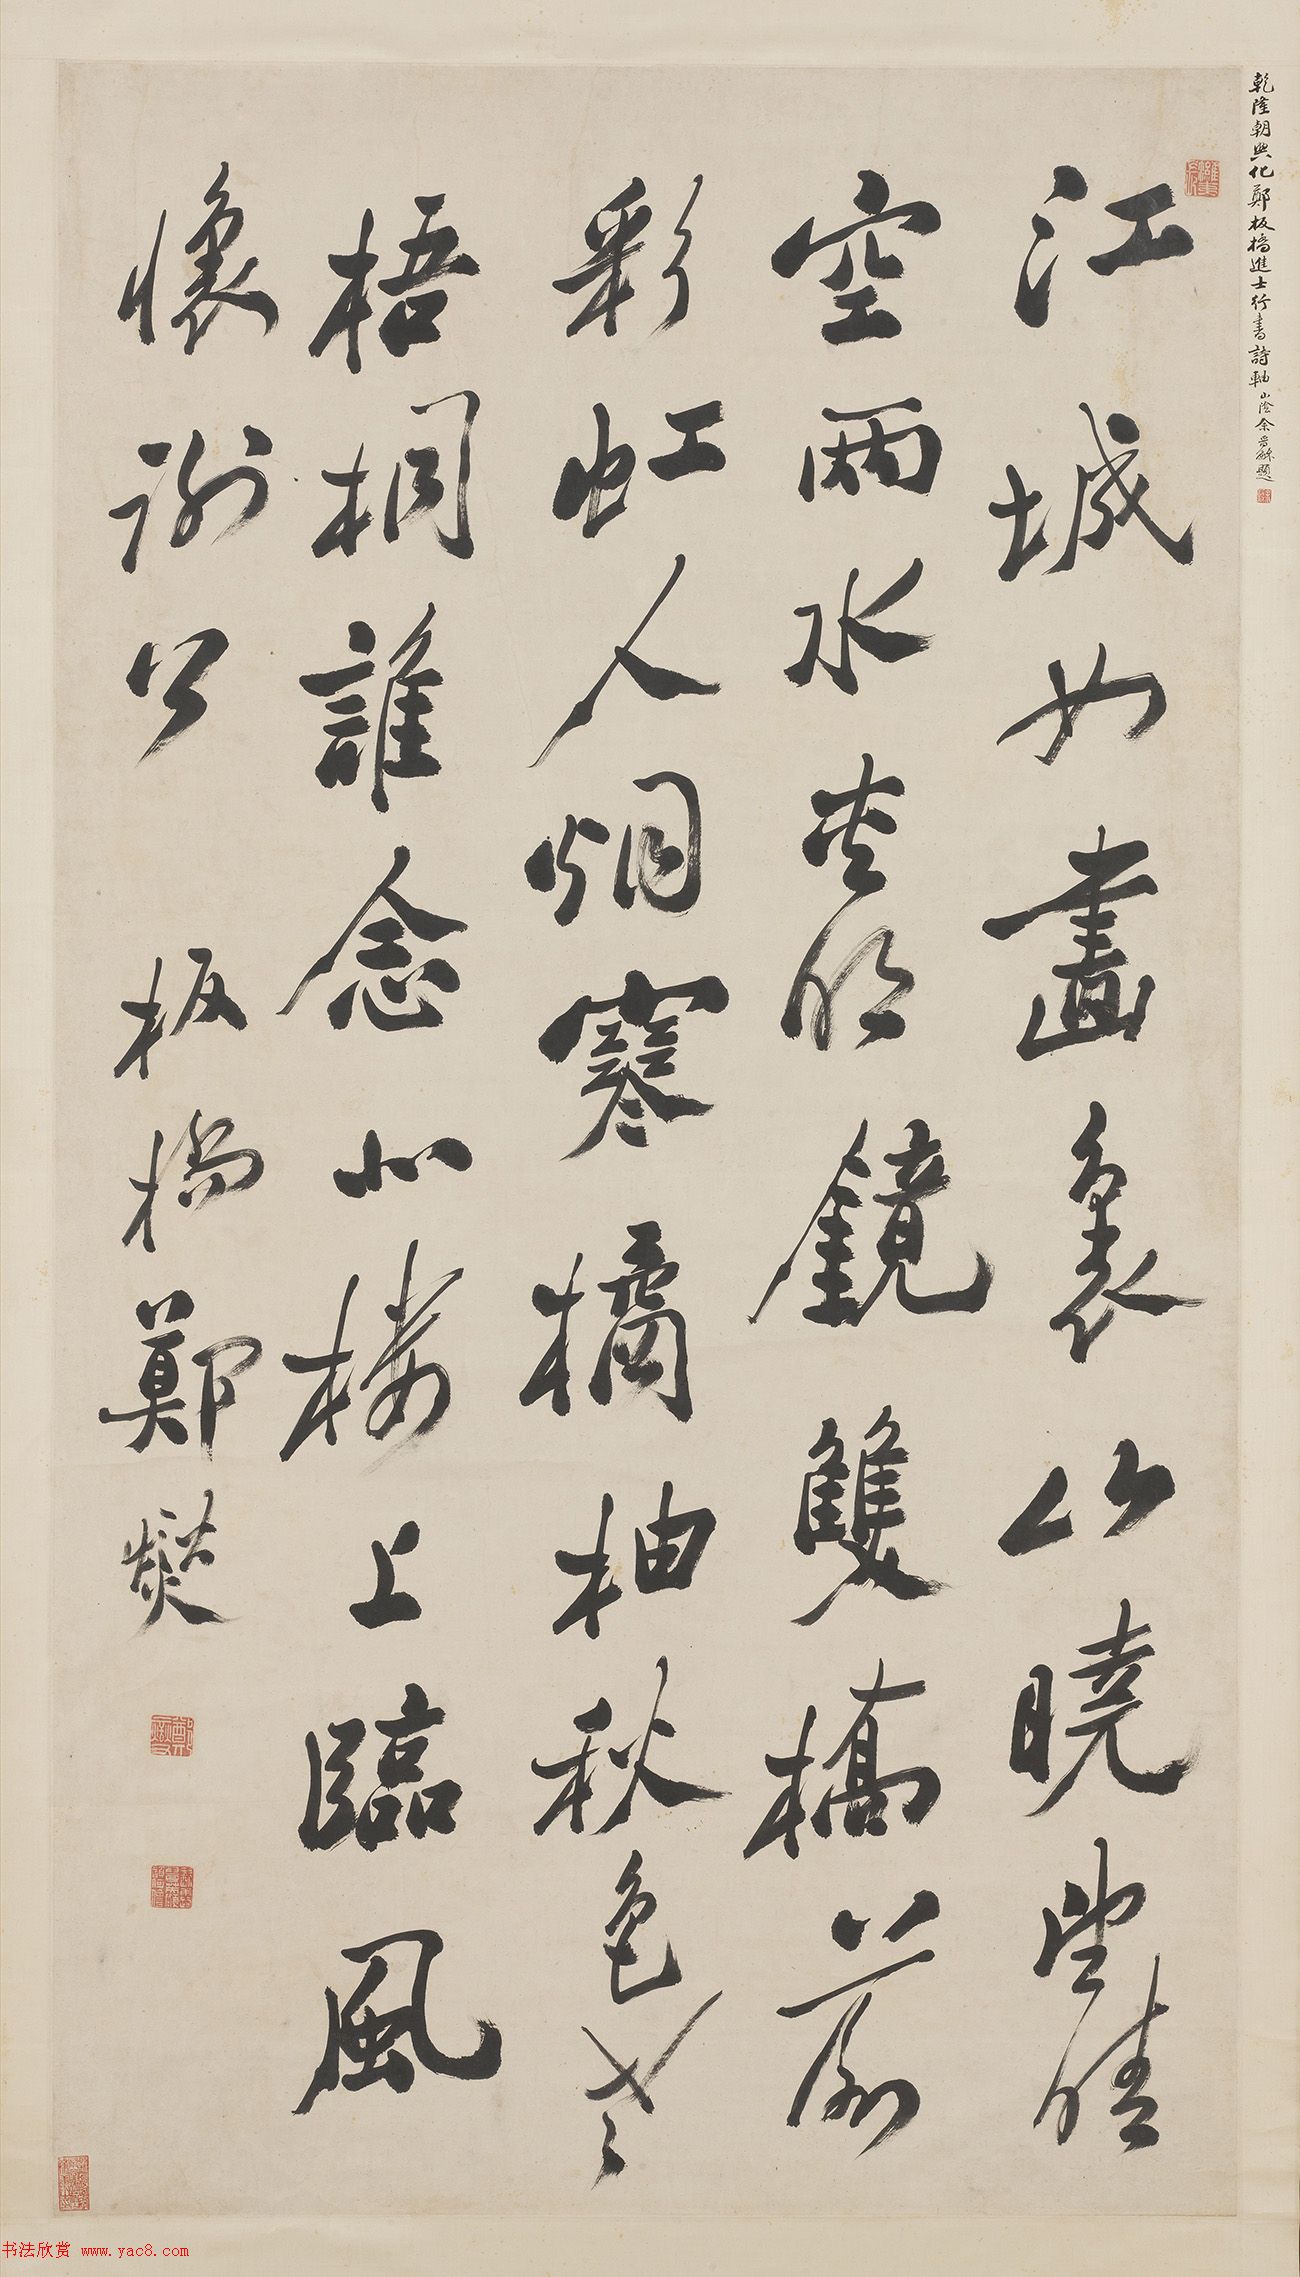 乾隆朝興化鄭板橋進士行書詩軸 山陰余晉龢題
江城如畫裏山曉望晴
空兩水夾明鏡雙橋落
彩虹人烟寒橘柚秋色老
梧桐誰念北樓上臨風
懷謝公 板橋鄭燮
书法欣赏 www.yac8.com